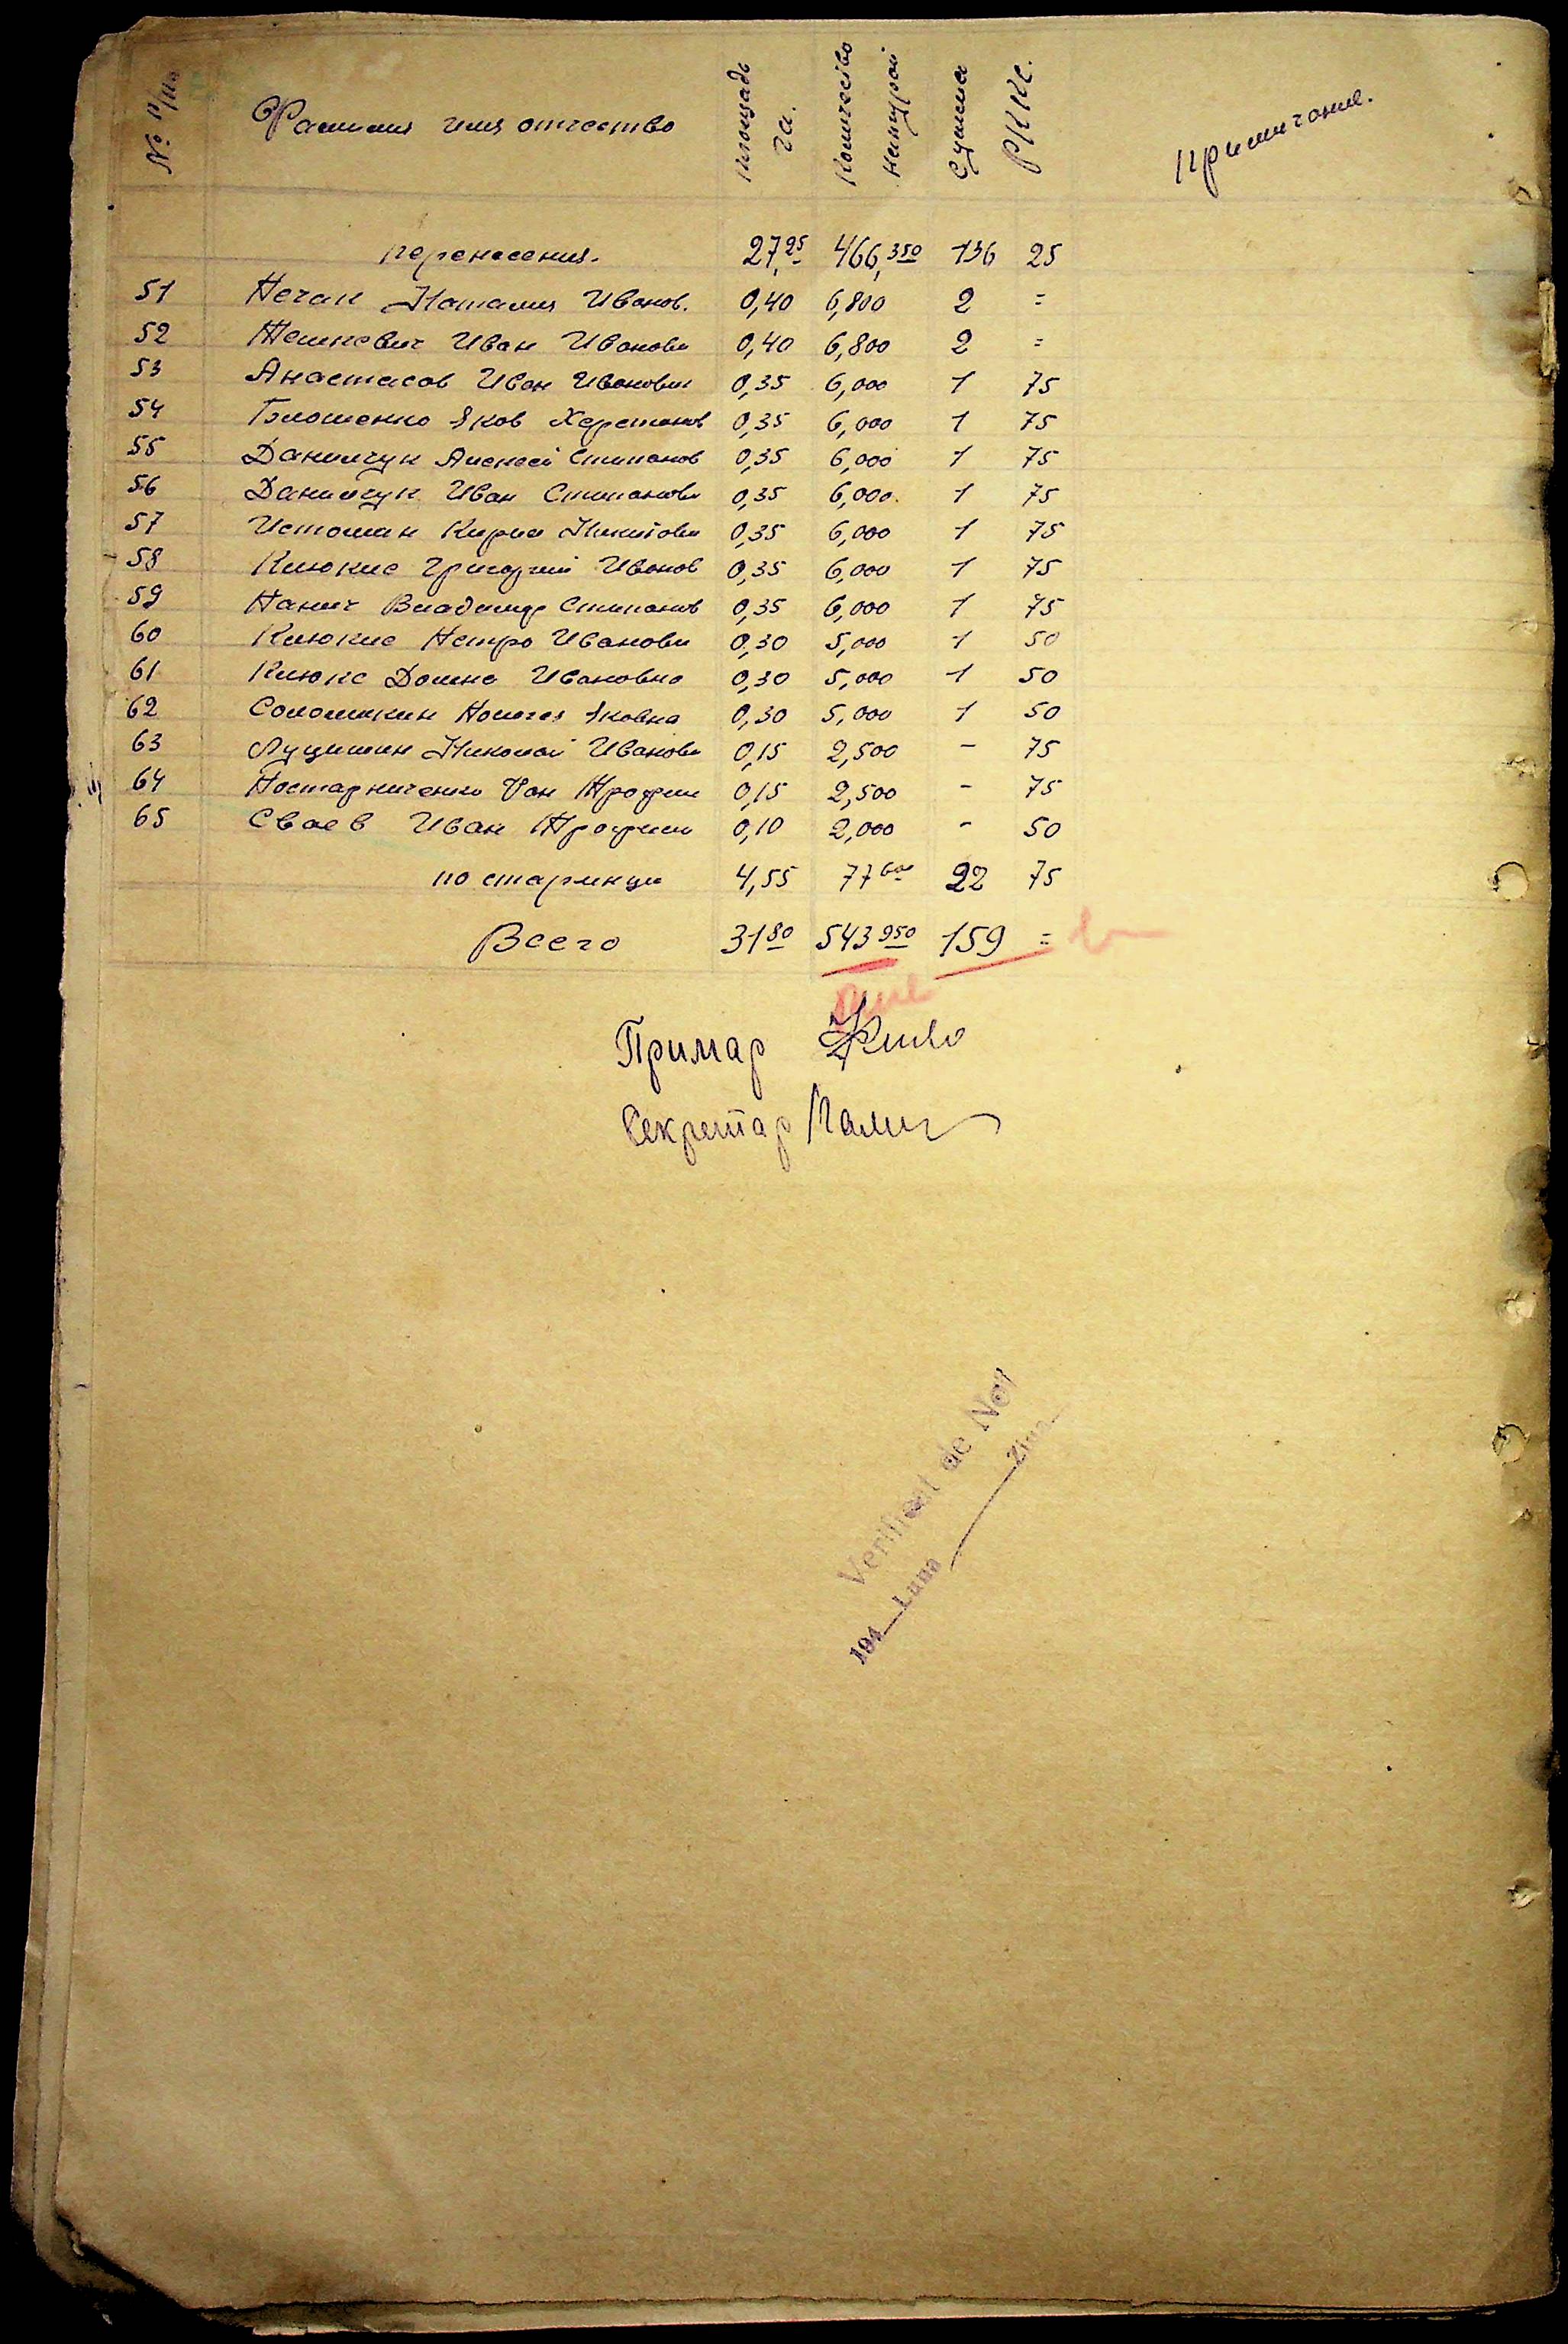 № п/па Фамилия имя отчество площадь га. Количество натурой Сумма РККС. примичание.
перенесения. 27,25 466,350 136 25
51 Нечак Наталия Иванов. 0,40 6,800 2 =
52 Темневич Иван Иванови 0,40 6,800 2 =
53 Анастасов Иван Иванович 0,35 6,000 1 75
54 Блошенко Яков Херетонов 0,35 6,000 1 75
55 Данилчук Алексей Стипанов 0,35 6,000 1 75
56 Данилчук Иван Стипанови 0,35 6,000. 1 75
57 Истоман Кирил Никитови 0,35 6,000 1 75
58 Клюкис Григорий Иванов 0,35 6,000 1 75
59 Панич Владимир Стипанов 0,35 6,000 1 75
60 Клюкис Петро Иванови 0,30 5,000 1 50
61 Клюкс Домна Ивановна 0,30 5,000 1 50
62 Соломикин Яковна 0,30 5,000 1 50
63 Луцишин Николай Иванови 0,15 2,500 - 75
64 Постарниченко Трофим 0,15 2,500 - 75
65 Сваев Иван Трофим 0,10 2,000 - 50
по старинци 4,55 77 600 22 75
Всего 31 80 543 950 159 =
Примар
Секретар
Verificat de Noi
194__Luna____Ziua__